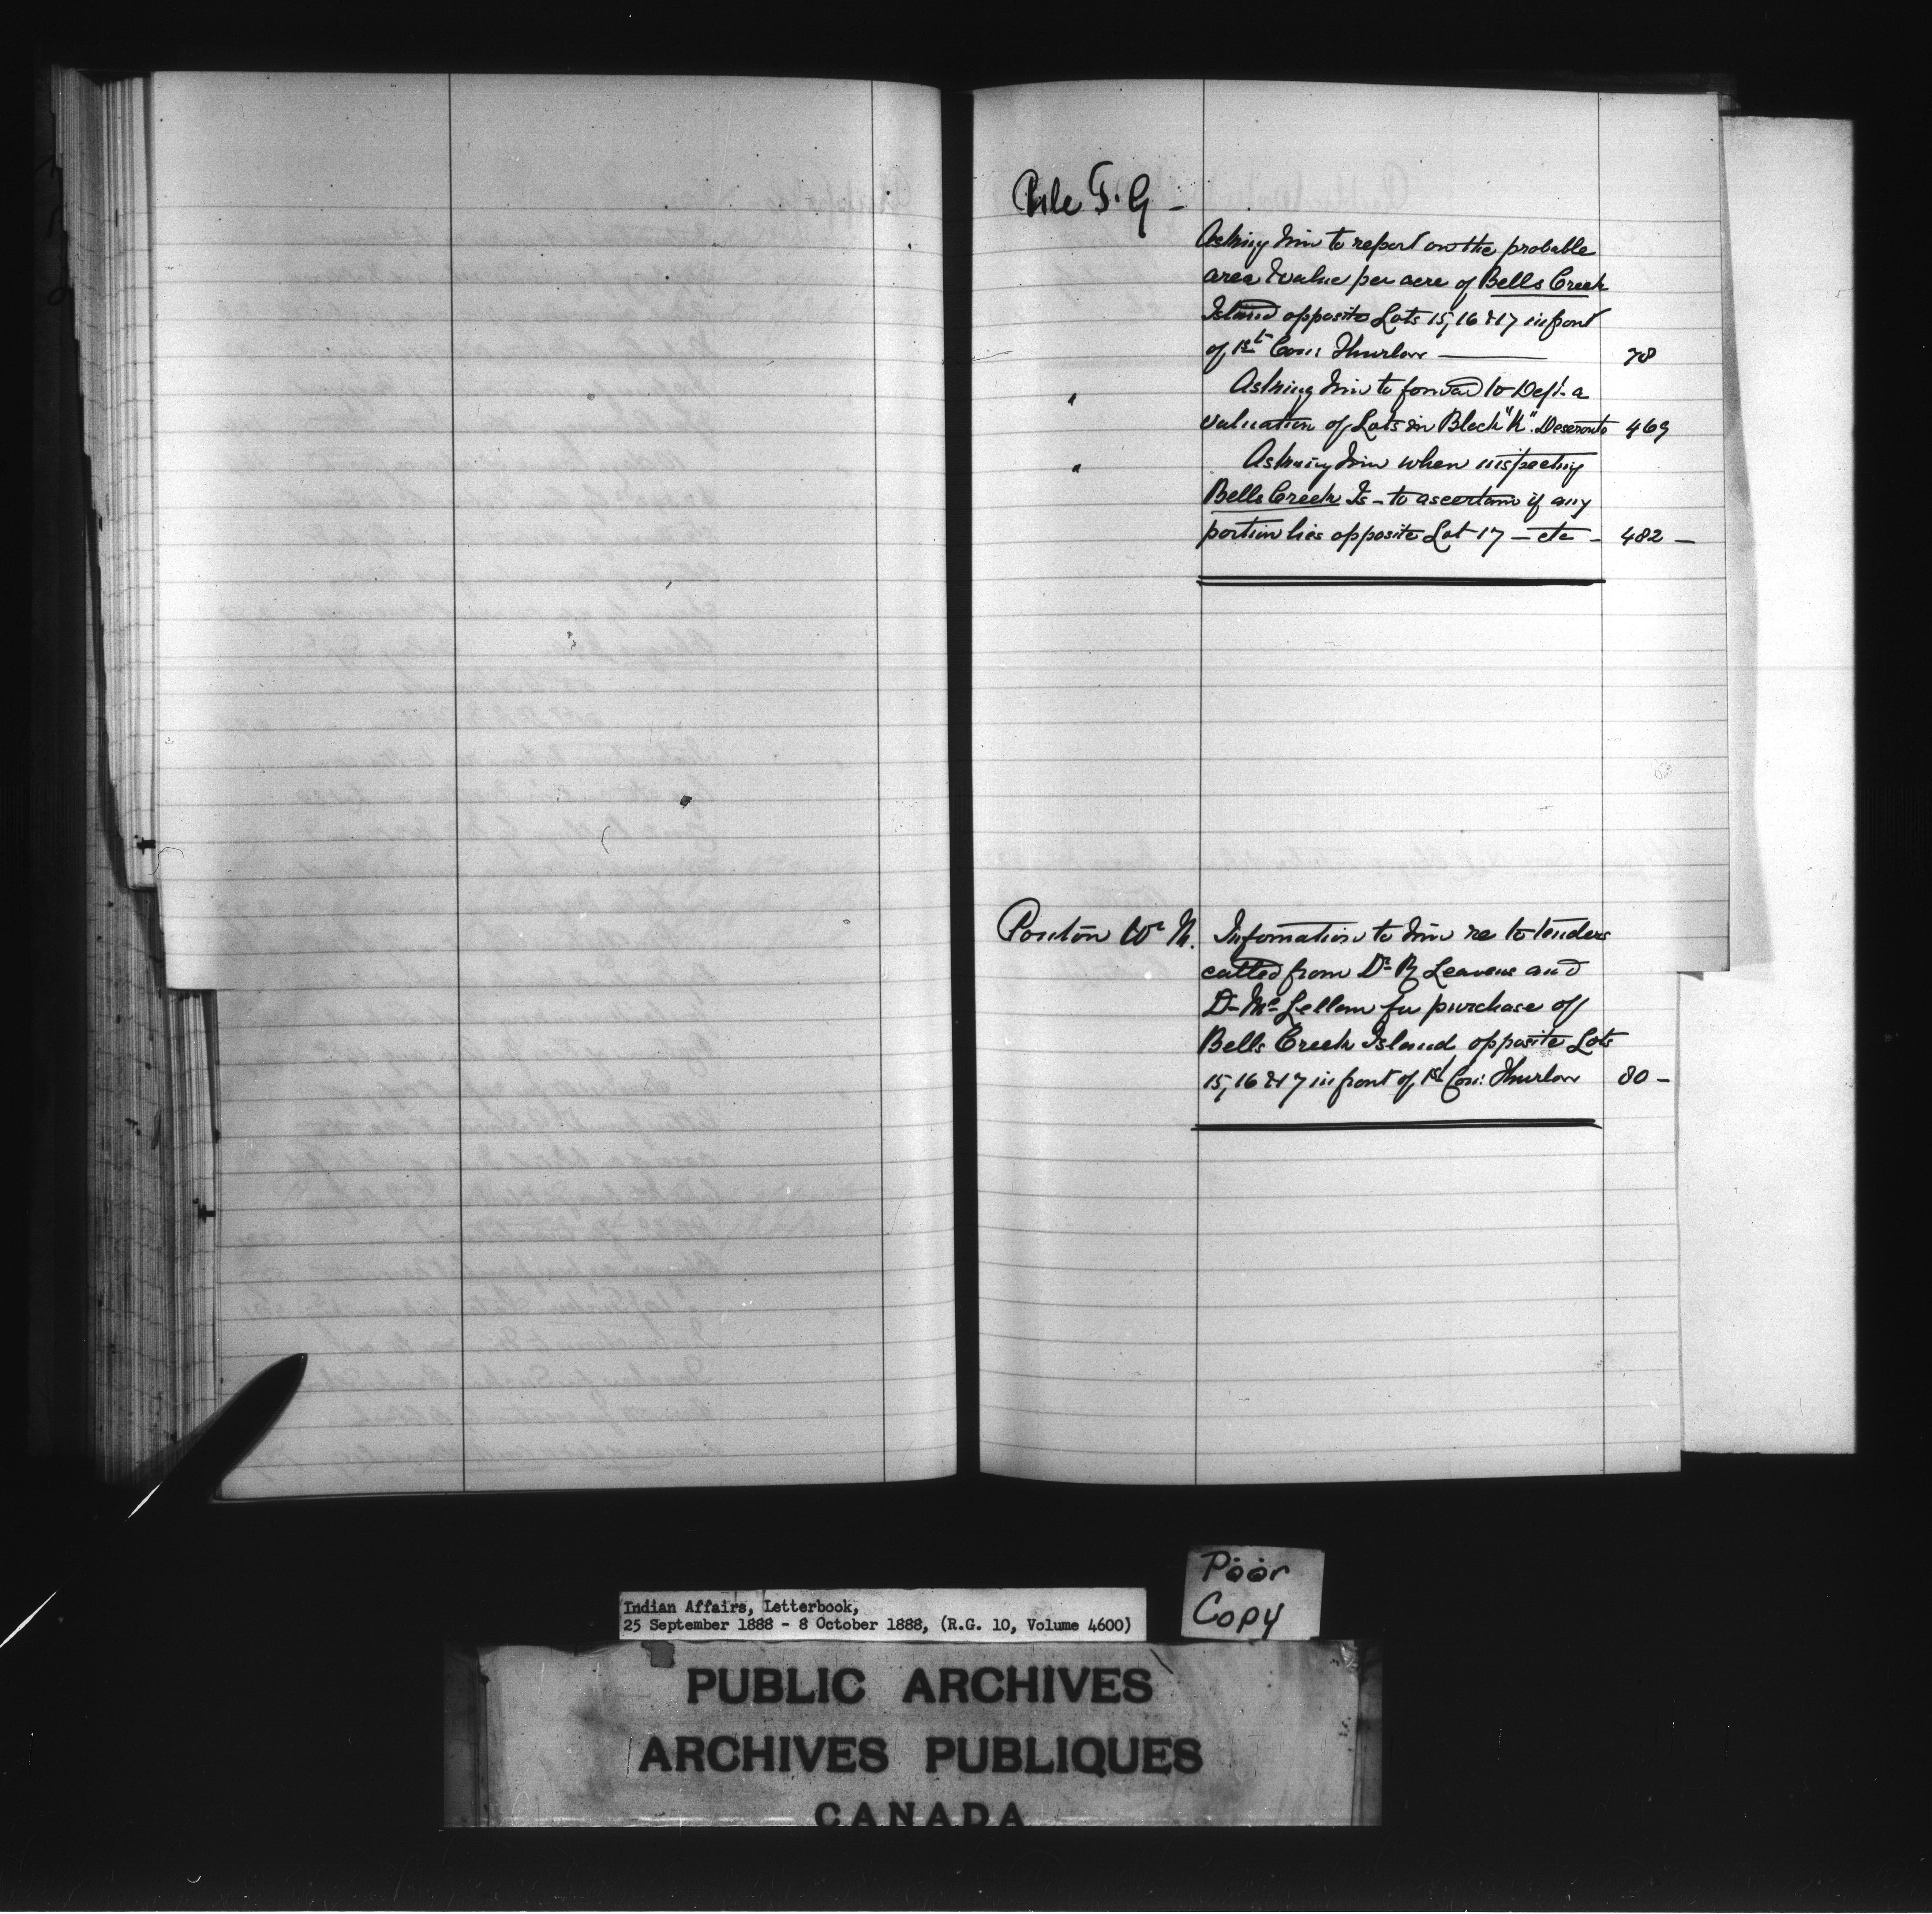 Pile T. G –
Asking him to report on the probable
area & value per acre of Bells Creek
Island opposite Lots 15, 16 & 17 in front
of 1st Con: Thurlow — 78
" Asking him to forward to Dept. a
valuation of Lots in Block "K". Deseronto 469
" Asking him when inspecting
Bells Creek Is – to ascertain if any
portion lies opposite Lot 17 – etc – 482 –
Ponton Wm N. Information to him re to tenders
called from Dr. R Leavens and
D. McLellan for purchase of
Bells Creek Island opposite Lots
15, 16 & 17 in front of 1st Con: Thurlow 80 –
Indian Affairs, Letterbook,
25 September 1888 - 8 October 1888, (R.G. 10, Volume 4600)
Poor
Copy
PUBLIC ARCHIVES
ARCHIVES PUBLIQUES
CANADA